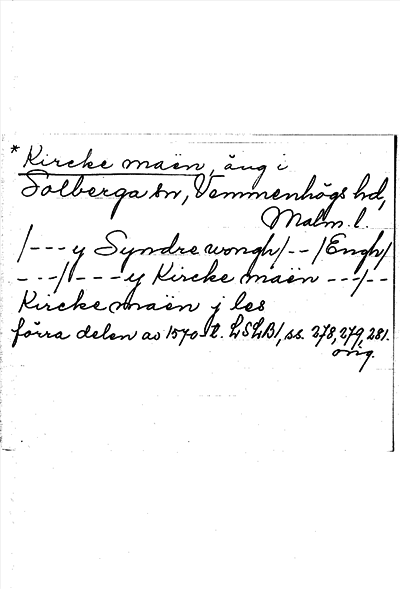 * Kircke maën, äng i
Solberga sn, Vemmenhögs hd,
Malm. l.
/--- y Syndre wongh/--/Engh/
---/--- y Kircke maën --/--
Kircke maën j les
förra delen av 1570-t. LSLB1, ss. 278, 279, 281.
orig.